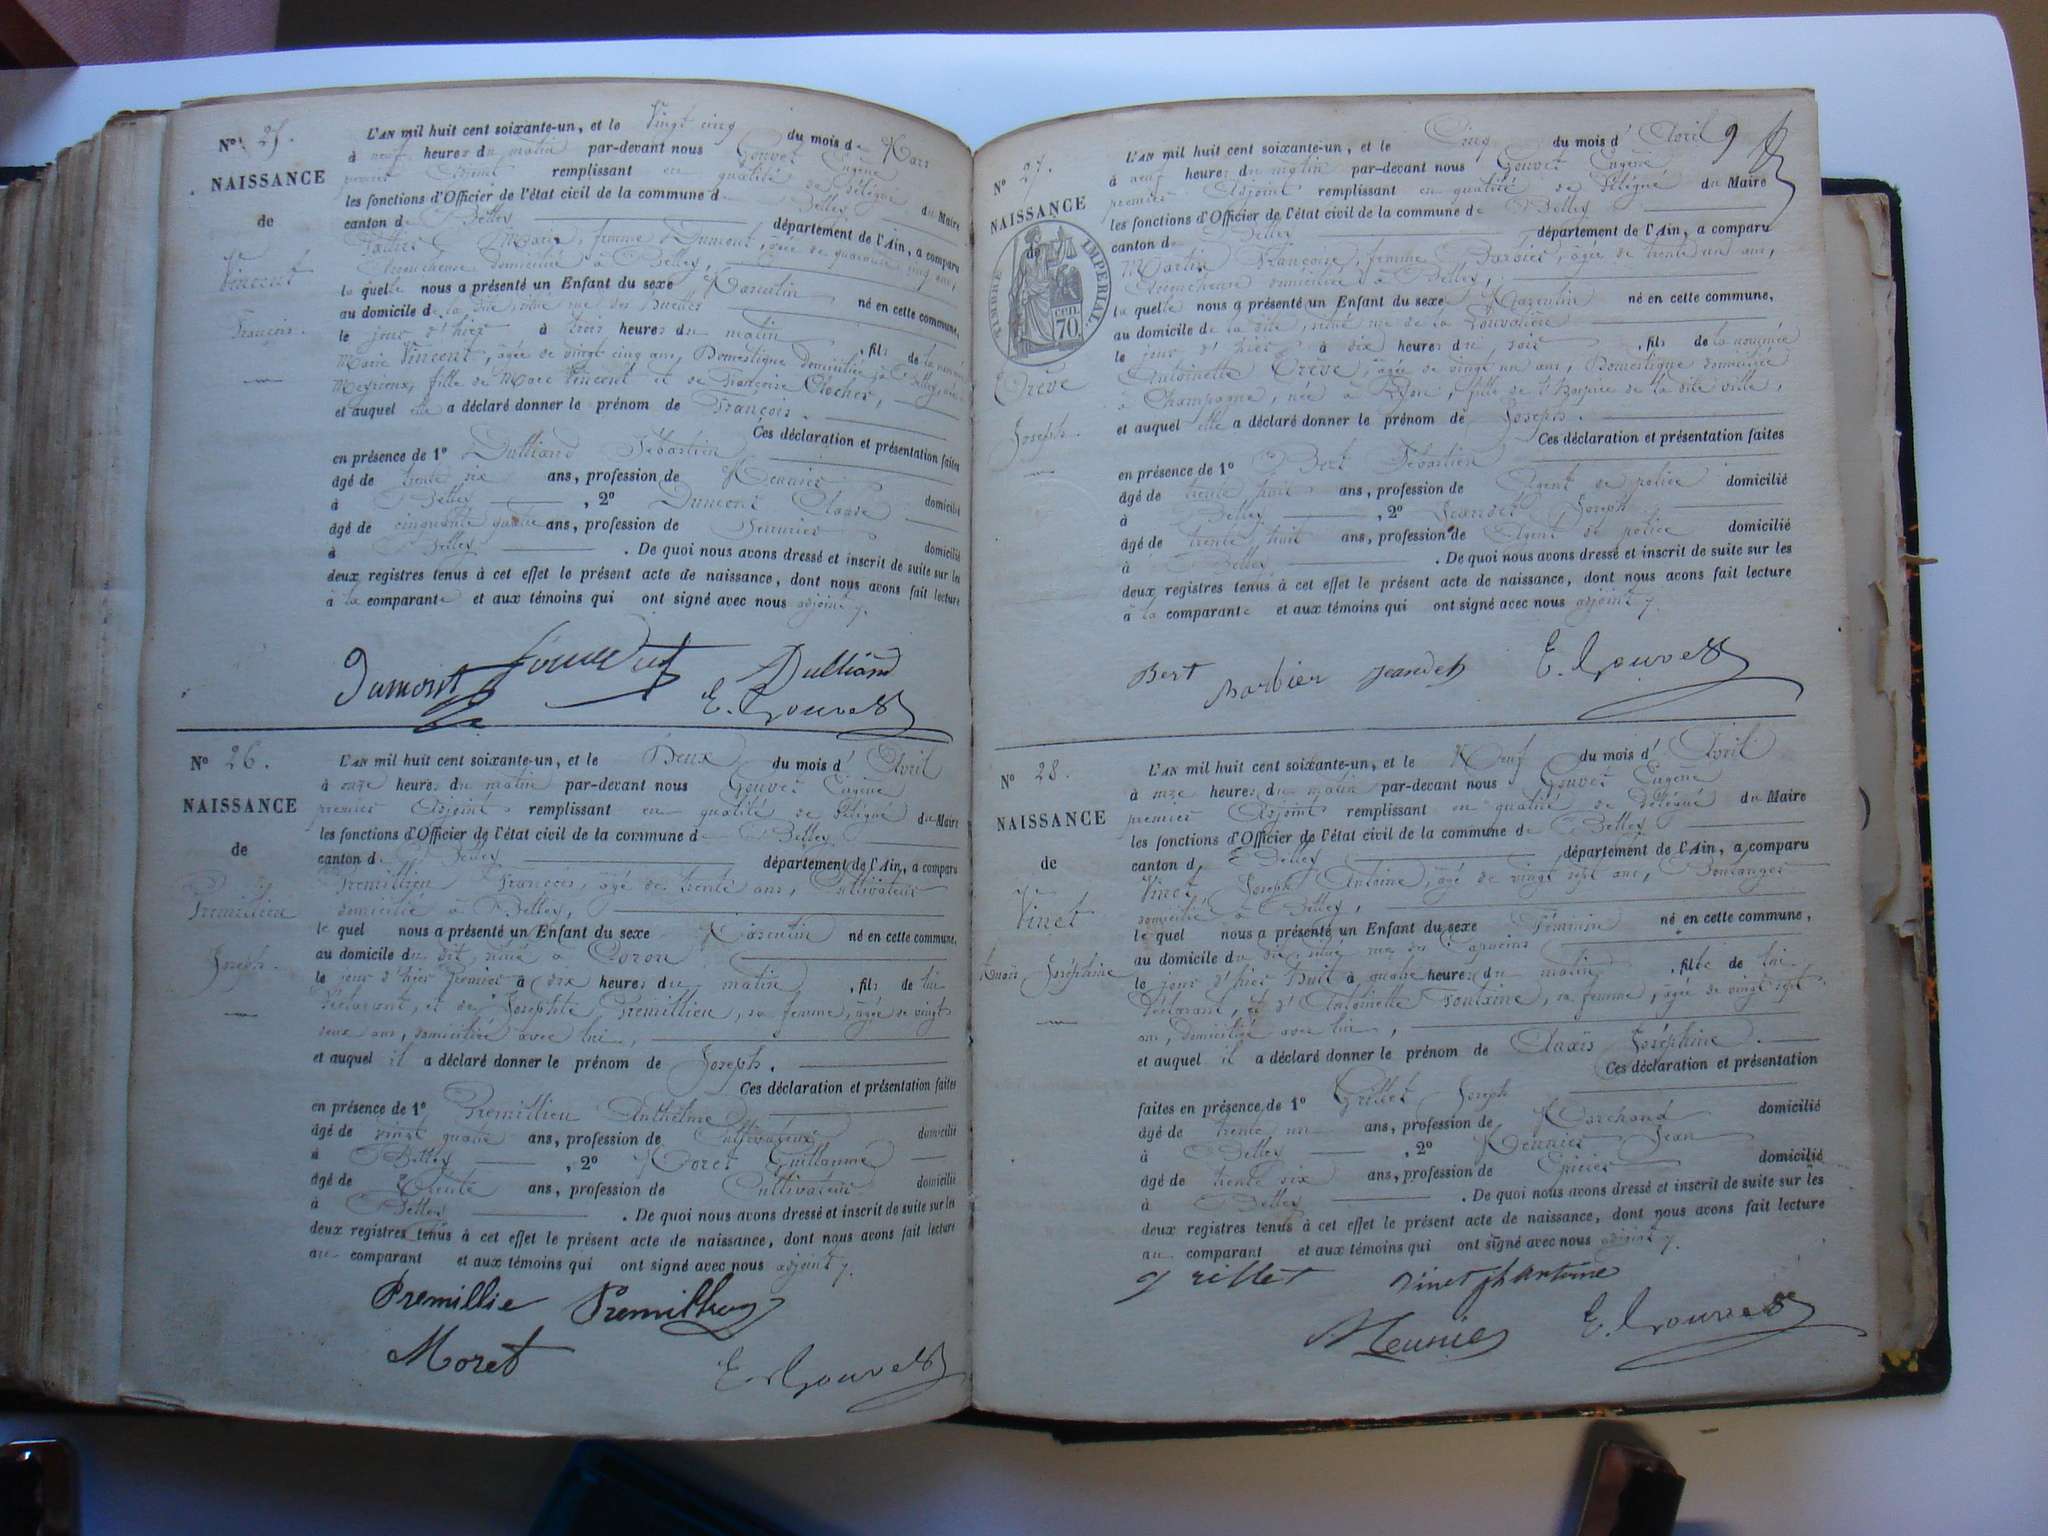 N° 25.
NAISSANCE
de
Vincent
François.
L'AN mil huit cent soixante-un, et le Vingt cinq du mois de Mars
à neuf heures du matin par-devant nous Gouvet Eugène
premier Adjoint remplissant en qualité de délégué du Maire
les fonctions d'Officier de l'état civil de la commune de Belley
canton de Belley département de l'Ain, a comparu
Marie, femme Dumont, âgée de quarante cinq ans,
Accoucheuse domiciliée à Belley,
laquelle nous a présenté un Enfant du sexe Masculin né en cette commune,
au domicile de la dite, situé rue des
le jour d'hier à trois heures du matin, fils de la nommée
Marie Vincent, âgée de vingt cinq ans, Domestique domiciliée à Belley, née à
Meyrieux, fille de Marc Vincent et de Françoise Clocher,
et auquel elle a déclaré donner le prénom de François.
Ces déclaration et présentation faites
en présence de 1° Dulliand Sébastien
âgé de trente six ans, profession de domicilié
à Belley, 2° Dumont Claude
âgé de cinquante quatre ans, profession de domicilié
à Belley. De quoi nous avons dressé et inscrit de suite sur les
deux registres tenus à cet effet le présent acte de naissance, dont nous avons fait lecture
à la comparante et aux témoins qui ont signé avec nous adjoint.
Dumont Dulliand
E. Gouvet
N° 26.
NAISSANCE
de
Premillieu
Joseph.
L'AN mil huit cent soixante-un, et le Deux du mois d'Avril
à onze heures du matin par-devant nous Gouvet Eugène
premier Adjoint remplissant en qualité de délégué du Maire
les fonctions d'Officier de l'état civil de la commune de Belley
canton de Belley département de l'Ain, a comparu
Premillieu François, âgé de trente ans, Cultivateur
domicilié à Belley,
lequel nous a présenté un Enfant du sexe Masculin né en cette commune,
au domicile du dit, situé à Coron
le jour d'hier premier à dix heures du matin, fils de lui
déclarant, et de Josephte Premillieu, sa femme, âgée de vingt
deux ans, domiciliée avec lui,
et auquel il a déclaré donner le prénom de Joseph.
Ces déclaration et présentation faites
en présence de 1° Premillieu Anthelme
âgé de vingt quatre ans, profession de Cultivateur domicilié
à Belley, 2° Moret Guillaume
âgé de trente ans, profession de Cultivateur domicilié
à Belley. De quoi nous avons dressé et inscrit de suite sur les
deux registres tenus à cet effet le présent acte de naissance, dont nous avons fait lecture
au comparant et aux témoins qui ont signé avec nous adjoint.
Premillie Premillieu
Moret E. Gouvet
9
N° 27.
NAISSANCE
de
TIMBRE IMPERIAL
CEN. 70
Crève
Joseph.
L'AN mil huit cent soixante-un, et le Cinq du mois d'Avril
à neuf heures du matin par-devant nous Gouvet Eugène
premier Adjoint remplissant en qualité de délégué du Maire
les fonctions d'Officier de l'état civil de la commune de Belley
canton de Belley département de l'Ain, a comparu
Martin Françoise, femme Barbier, âgée de trente un ans,
Accoucheuse domiciliée à Belley,
laquelle nous a présenté un Enfant du sexe Masculin né en cette commune,
au domicile de la dite, situé rue de la
le jour d'hier à dix heures du soir, fils de la nommée
Antoinette Crève, âgée de vingt un ans, Domestique domiciliée
à Champagne, née à Lyon, fille de l'Hospice de la dite ville,
et auquel elle a déclaré donner le prénom de Joseph.
Ces déclaration et présentation faites
en présence de 1° Bert Sébastien
âgé de trente huit ans, profession de Agent de police domicilié
à Belley, 2° Jeandet Joseph
âgé de trente huit ans, profession de Agent de police domicilié
à Belley. De quoi nous avons dressé et inscrit de suite sur les
deux registres tenus à cet effet le présent acte de naissance, dont nous avons fait lecture
à la comparante et aux témoins qui ont signé avec nous adjoint.
Bert Barbier Jeandet E. Gouvet
N° 28.
NAISSANCE
de
Vinet
Joséphine
L'AN mil huit cent soixante-un, et le Neuf du mois d'Avril
à onze heures du matin par-devant nous Gouvet Eugène
premier Adjoint remplissant en qualité de délégué du Maire
les fonctions d'Officier de l'état civil de la commune de Belley
canton de Belley département de l'Ain, a comparu
Vinet Joseph Antoine, âgé de vingt sept ans, Boulanger
domicilié à Belley,
lequel nous a présenté un Enfant du sexe Féminin né en cette commune,
au domicile du dit, situé rue des Capucins
le jour d'hier huit à quatre heures du matin, fille de lui
déclarant, et d'Antoinette Fontaine, sa femme, âgée de vingt sept
ans, domiciliée avec lui,
et auquel il a déclaré donner le prénom de Joséphine.
Ces déclaration et présentation
faites en présence de 1° Grillet Joseph
âgé de trente un ans, profession de Marchand domicilié
à Belley, 2° Meunier Jean
âgé de trente six ans, profession de Epicier domicilié
à Belley. De quoi nous avons dressé et inscrit de suite sur les
deux registres tenus à cet effet le présent acte de naissance, dont nous avons fait lecture
au comparant et aux témoins qui ont signé avec nous adjoint.
Grillet Vinet Jh Antoine
Meunier E. Gouvet